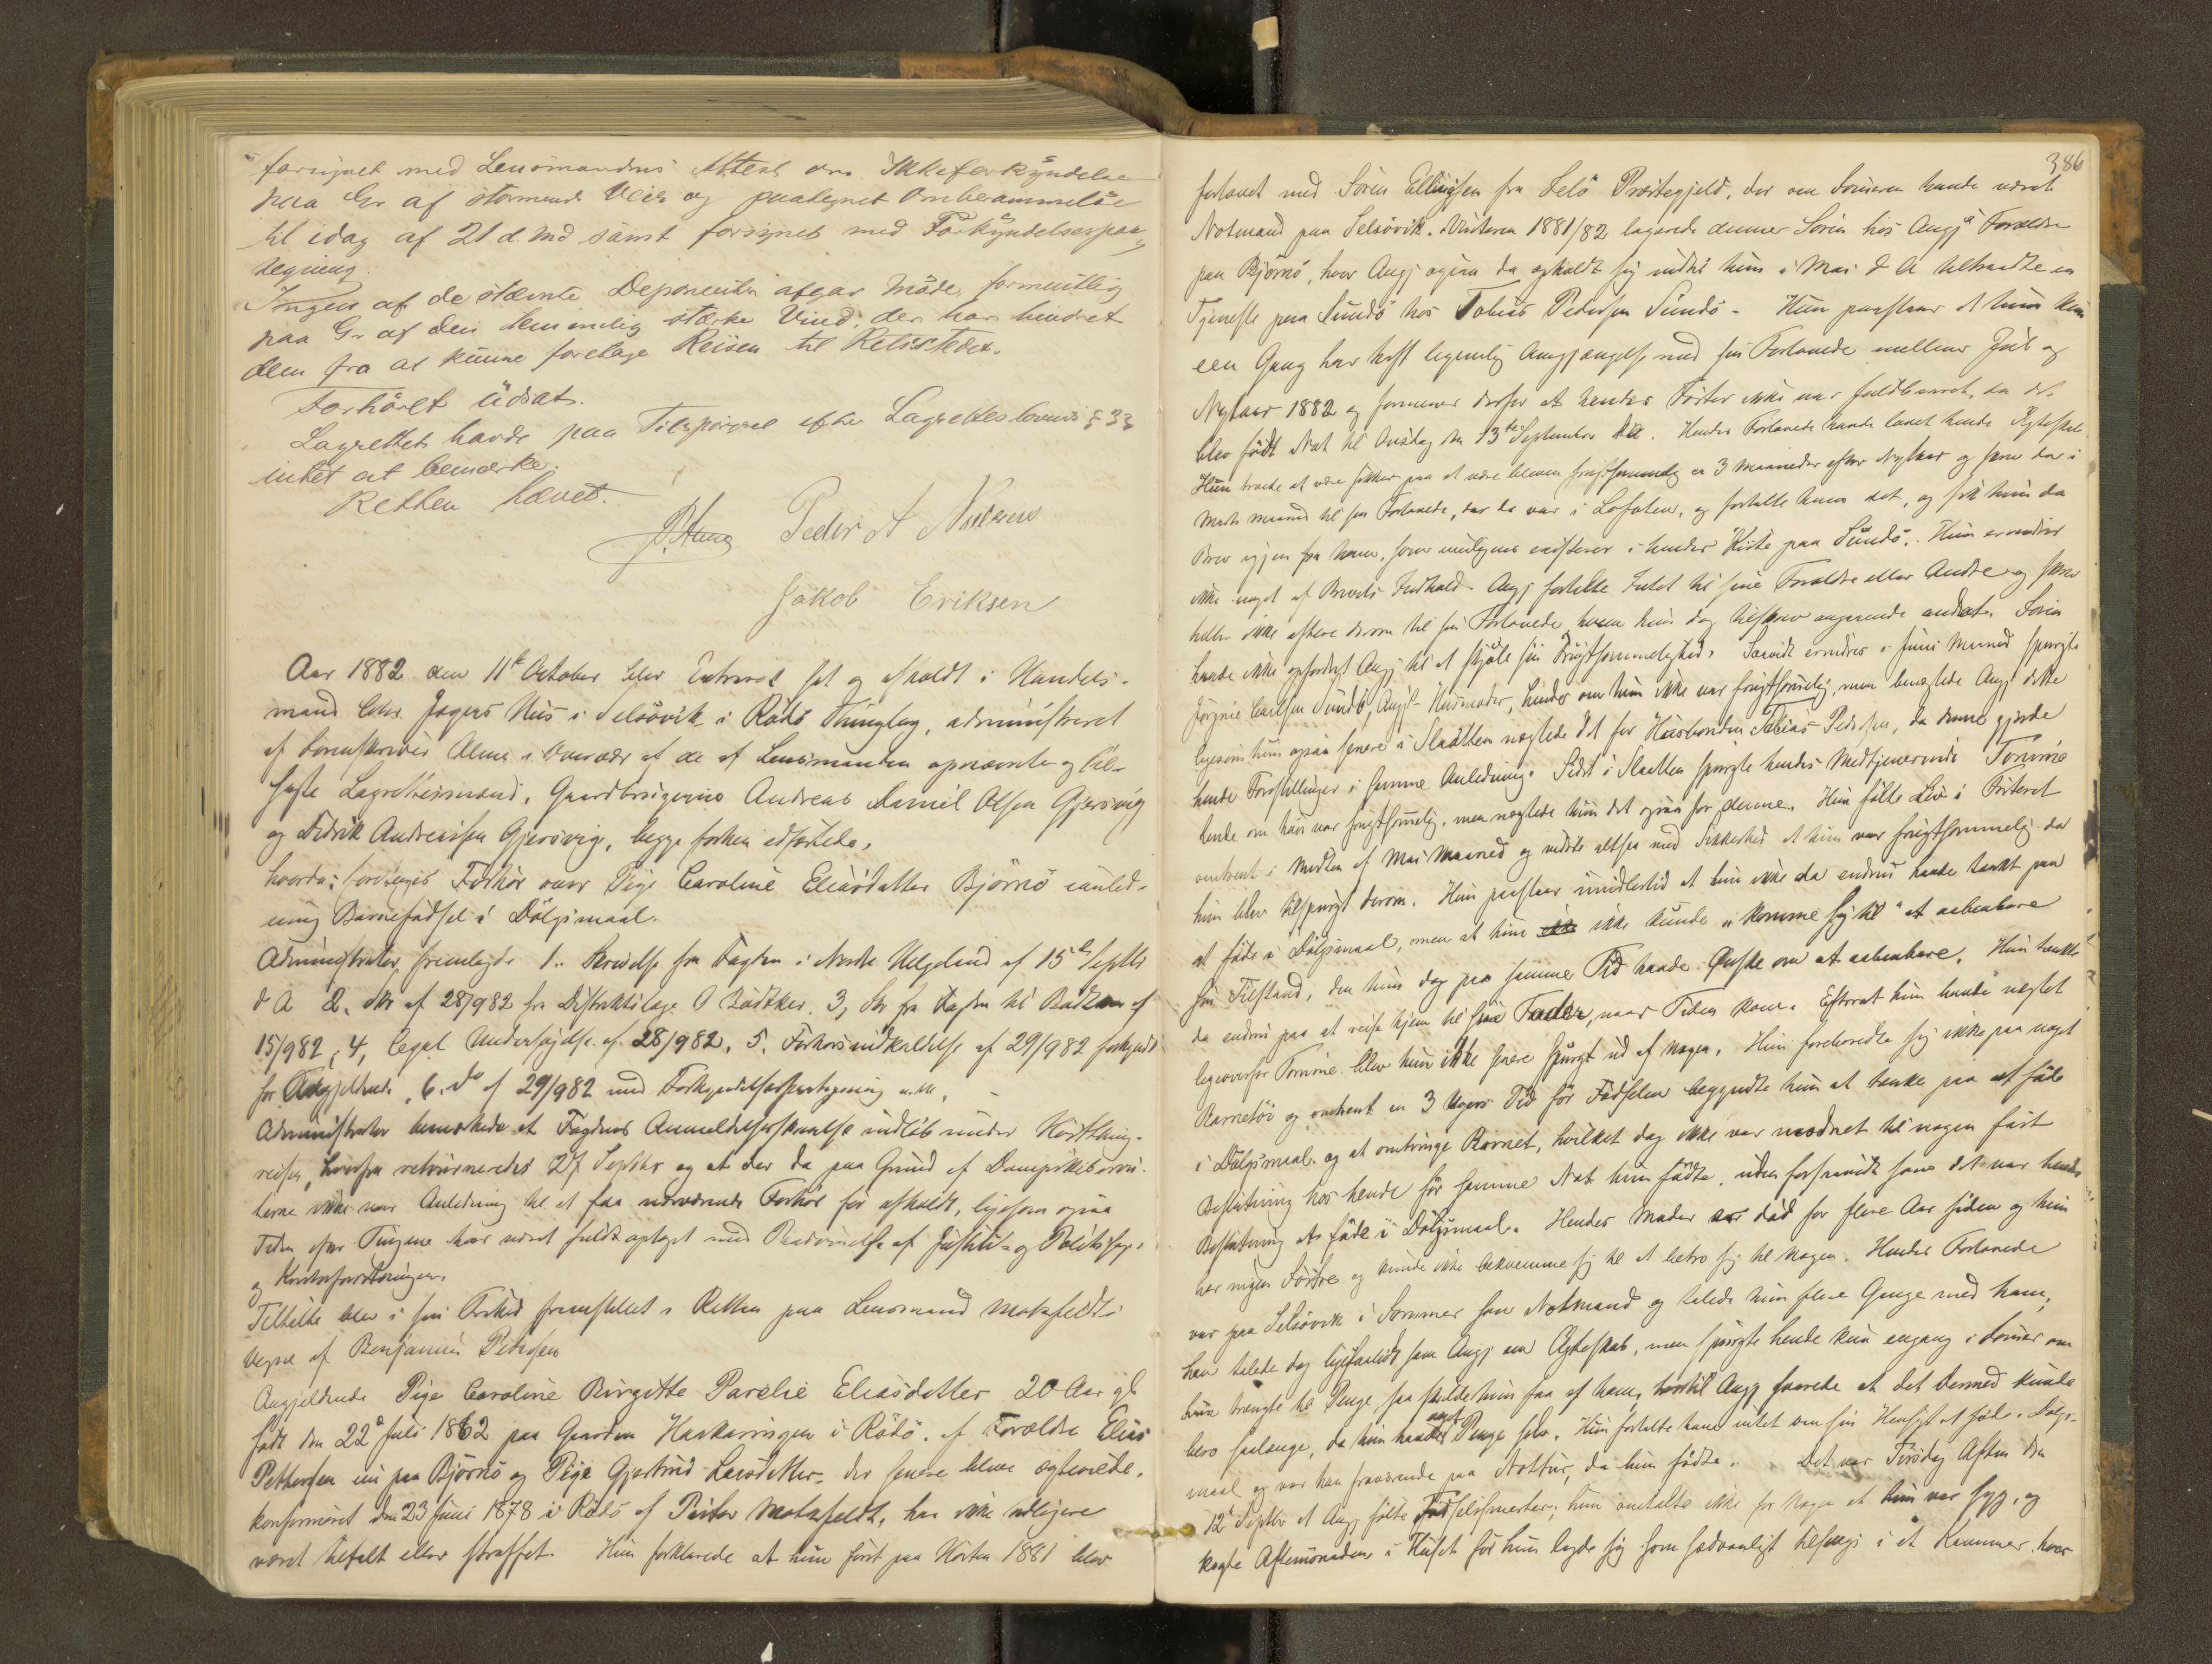 forsynet med Lensmandens Attest om Ikkeforkyndelse
paa Gr af stormende Veir og paategnet Omberammelse
til idag af 21 d. Md samt forsynet med Forkyndelsespaa-
tegning.
Ingen af de stævnte Deponenter afgav Møde, formentlig
paa Gr. af den temmelig stærke Vind, der har hindret
dem fra at kunne foretage Reisen til Retsstedet.
Forhöret udsat.
Lagrettet havde paa Tilspørgsel efter Lagrettesloven § 33
intet at bemærke.
Retten hævet.
Peder A Nielsen
Jakob Eriksen
Aar 1882 den 11te October blev Extraret sat og afholdt i Handels-
mand Chr. Jægers Hus i Selsövik i Rödö Thinglag, administreret
af Sorenskriver Alme i Overvær af de af Lensmanden opnævnte og til-
sagte Lagrettesmænd, Gaardbrugerne Andreas Daniel Olsen Gjersvig
og Didrik Andreassen Gjersvig, begge forhen edfæstede,
hvorda: foretoges Forhör over Pige Caroline Eliasdatter Björnö i anled-
ning Barnefödsel i Dölgsmaal.
Administrator fremlagde 1. Skrivelse fra Fogden i Nordre Helgeland af 15de Septbr
d A 2. Skr af 28/9 82 fra Distriktslæge O Bödtker. 3, Skr fra Fogden til Bödtker af
15/9 82; 4, legal Undersøgelse af 28/9 82, 5. Forhörsindkaldelse af 29/9 82 forkyndt
for Angjeldende, 6. Do af 29/9 82 med Forkyndelsespaategning
Administrator bemærkede at Fogdens Anmeldelsesskrivelse indløb under Höstthing-
reisen, hvorfra retourneredes 27 Septbr og at der da paa Grund af Dampskibsrou-
terne ikke var Anledning til at faa nærværende Forhör för afholdt, ligesom ogsaa
Tiden efter Tingene har været fuldt optaget med af Justits- og Politisager
og Kontorforretninger.
Tiltalte blev i sin Frihed fremstillet i Retten paa Lensmand Motzfeldts
Vegne af Benjamin Pedersen
Angjeldende Pige Caroline Birgitte Parelie Eliasdatter 20 Aar gl
födt den 22de Juli 1862 paa Gaarden i Rödö. af Forældre Elias
Pettersen nu paa Björnö og Pige Gjertrud Larsdatter, der senere bleve ægteviede.
konfirmeret den 23 Juni 1878 i Rödö af Pastor Motzfeldt, har ikke tidligere
været tiltalt eller straffet. Hun forklarede at hun först paa Hösten 1881 blev
386
forlovet med Sören Ellingsen fra Lelö Præstegjeld, der om Somren havde været
Notmand paa Selsövik. Vinteren 1881/82 logerede denne Sören hos Angjs Forældre
paa Björnö, hvor Angj ogsaa da opholdt sig indtil hun i Mai d A tiltraadte en
Tjeneste paa Sundö hos Tobias Pedersen Sundö - Hun paastaar at hun kun
een Gang har havt legemlig Omgjængelse med sin Forlovede mellem Jul og
Nytaar 1882 og formener derfor at hendes Foster ikke var fuldbaaret, da det
blev födt Nat til Onsdag den 13de September d A. Hendes Forlovede havde lovet hende Ægteskab.
Hun troede at være sikker paa at være bleven frugtsommelig ca 3 Maaneder efter Nytaar og skrev da i
Marts maaned til sin Forlovede, der da var i Lofoten, og fortalte ham det, og fik hun da
Brev igjen fra ham, som muligens existerer i hendes Kiste paa Sundö. Hun erindrer
ikke noget af Brevets Indhold. Angj fortalte Intet til sine Forældre eller Andre og skrev
heller ikke oftere derom til sin Forlovede, hvem hun dog tilskrev angaaende andet. Sören
havde ikke opfordret Angj til at skjule sin Frugtsommelighed. Saavidt erindres i Juni Maaned spurgte
Jørgine Sundö, Angjs Husmoder, hende om hun ikke var frugtsommelig, men benægtede Angj dette
ligesom hun ogsaa senere i Slaatten nægtede det for Husbonden Tobias Pedersen, da denne gjorde
hende Forestillinger i samme Anledning. Sidst i Slaatten spurgte hendes Medtjenerinde Tomine
hende om hun var frugtsommelig, men nægtede hun det ogsaa for denne. Hun følte Liv i Fosteret
omtrent i Midten af Mai Maaned og vidste altsaa med Sikkerhed at hun var frugtsommelig da
hun blev tilspurgt derom. Hun paastaar imidlertid at hun ikke da endnu havde tænkt paa
at föde i Dölgsmaal, men at hun ikke kunde "komme sig til" at aabenbare
sin Tilstand, den hun dog paa samme Tid havde Ønske om at aabenbare. Hun tænkte
da endnu paa at reise hjem til sin Fader, naar Tiden kom. Efterat hun havde nægtet
ligeoverfor Tomine blev hun ikke senere spurgt ud af nogen. Hun forberedte sig ikke paa noget
Barnetøi og omtrent en 3 Ugers Tid för Födselen begyndte hun at tænke paa at föde
i Dölgsmaal og at ombringe Barnet, hvilket dog ikke var modnet til nogen fast
Beslutning hos hende för samme Nat hun födte, uden forsaavidt som det var hendes
Beslutning at föde i Dölgsmaal. Hendes Moder er död for flere Aar siden og hun
har ingen Söstre og kunde ikke bekvemme sig til at betro sig til nogen. Hendes Forlovede
var paa Selsövik i Sommer som Notmand og talede hun flere Gange med ham,
han talede dog ligesaalidt som Angj om Ægteskab, men spurgte hende kun engang i Sommer om
hun trængte til Penge, saa skulde hun faa af ham, hvortil Angj svarede at det dermed kunde
bero saalænge, da hun havde noget Penge selv. Hun fortalte ham intet om sin Hensigt at föde i Dölgs-
maal og var han fraværende paa Nottur, da hun födte. Det var Tirsdag Aften den
12te Septbr at Angj følte Födselssmerter; hun omtalte ikke for nogen at hun var syg, og
kogte Aftensmaden i Huset för hun lagde sig som sædvanligt tilsengs i et Kammer, hvor